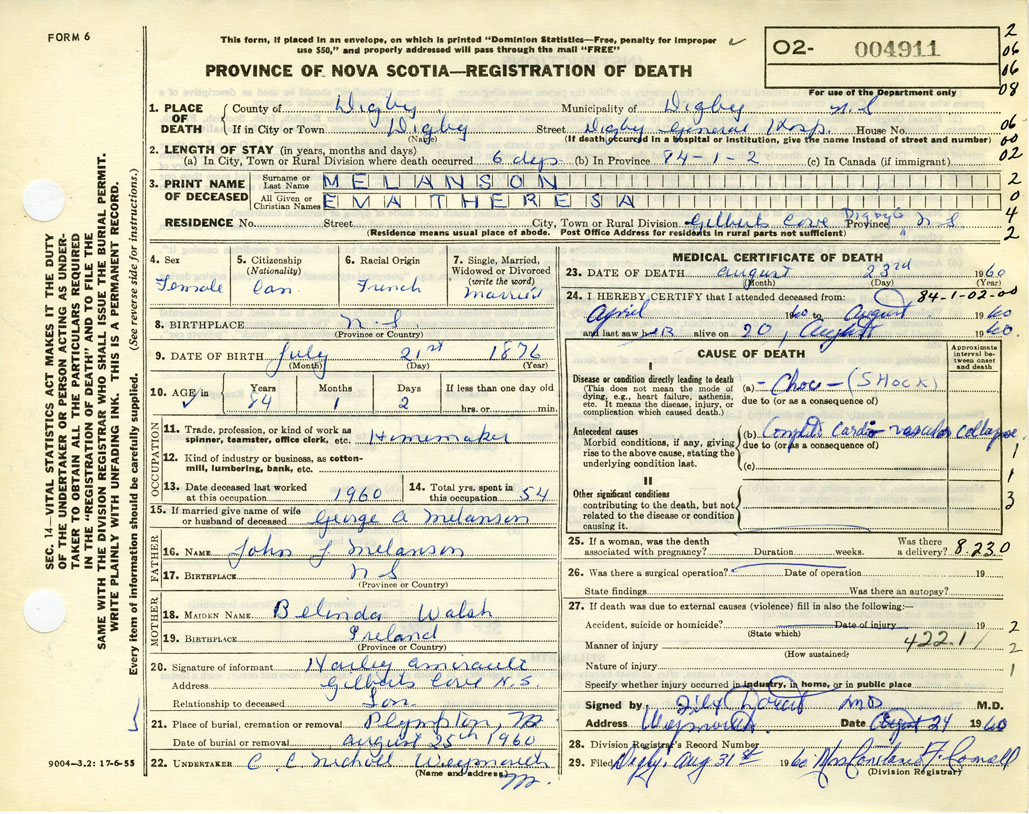 FORM 6
This form, if placed in an envelope, on which is printed "Dominion Statistics—Free, penalty for improper
use $50," and properly addressed will pass through the mail "FREE"
02- 004911
For use of the Department only
PROVINCE OF NOVA SCOTIA—REGISTRATION OF DEATH
1. PLACE OF DEATH
County of Digby Municipality of Digby N.S
If in City or Town Digby Street Digby General Hosp. House No.
(Name) (If death occurred in a hospital or institution, give the name instead of street and number)
2. LENGTH OF STAY (in years, months and days)
(a) In City, Town or Rural Division where death occurred 6 days (b) In Province 84-1-2 (c) In Canada (if immigrant)
3. PRINT NAME OF DECEASED
Surname or Last Name MELANSON
All Given or Christian Names EMA THERESA
RESIDENCE No. Street City, Town or Rural Division Gilberts Cove Digby Province N.S
(Residence means usual place of abode. Post Office Address for residents in rural parts not sufficient)
2
06
06
08
06
00
02
2
0
4
2
4. Sex
Female
5. Citizenship
(Nationality)
Can.
6. Racial Origin
French
7. Single, Married,
Widowed or Divorced
(write the word)
Married
8. BIRTHPLACE N.S.
(Province or Country)
9. DATE OF BIRTH July 21st 1876
(Month) (Day) (Year)
10. AGE in Years Months Days If less than one day old
84 1 2 hrs. or min.
OCCUPATION
11. Trade, profession, or kind of work as
spinner, teamster, office clerk, etc. Homemaker
12. Kind of industry or business, as cotton-
mill, lumbering, bank, etc.
13. Date deceased last worked
at this occupation 1960
14. Total yrs. spent in
this occupation 54
15. If married give name of wife
or husband of deceased George A Melanson
FATHER
16. NAME John J Melanson
17. BIRTHPLACE N S
(Province or Country)
MOTHER
18. MAIDEN NAME Belinda Walsh
19. BIRTHPLACE Ireland
(Province or Country)
20. Signature of informant Harley Amirault
Address Gilberts Cove N.S.
Relationship to deceased Son.
21. Place of burial, cremation or removal Plympton, NS
Date of burial or removal August 25th 1960
22. UNDERTAKER C. C Nicholl Weymouth
(Name and address)
MEDICAL CERTIFICATE OF DEATH
23. DATE OF DEATH August 23rd 1960
(Month) (Day) (Year)
24. I HEREBY CERTIFY that I attended deceased from: 84-1-02-00
April 1960 to August 1960
and last saw her alive on 20, August 1960.
CAUSE OF DEATH
Approximate
interval be-
tween onset
and death
I
Disease or condition directly leading to death
(This does not mean the mode of
dying, e.g., heart failure, asthenia,
etc. It means the disease, injury, or
complication which caused death.)
(a) - Choc - (SHOCK)
due to (or as a consequence of)
Antecedent causes
Morbid conditions, if any, giving
rise to the above cause, stating the
underlying condition last.
(b) Complete Cardio vascular collapse.
due to (or as consequence of)
(c)
II
Other significant conditions
contributing to the death, but not
related to the disease or condition
causing it.
1
1
3
25. If a woman, was the death
associated with pregnancy? Duration weeks. Was there
a delivery? 8.230
26. Was there a surgical operation? Date of operation 19
State findings Was there an autopsy?
27. If death was due to external causes (violence) fill in also the following:—
Accident, suicide or homicide? Date of injury 19
(State which)
Manner of injury 422.1
(How sustained)
Nature of injury
2
2
1
Specify whether injury occurred in industry, in home, or in public place
Signed by M.D. M.D.
Address Weymouth. Date August 24 1960
28. Division Registrar's Record Number
29. Filed Digby: Aug 31st 1960 Mrs Constance F. Connell
(Division Registrar)
SEC. 14—VITAL STATISTICS ACT MAKES IT THE DUTY
OF THE UNDERTAKER OR PERSON ACTING AS UNDER-
TAKER TO OBTAIN ALL THE PARTICULARS REQUIRED
IN THE "REGISTRATION OF DEATH" AND TO FILE THE
SAME WITH THE DIVISION REGISTRAR WHO SHALL ISSUE THE BURIAL PERMIT.
WRITE PLAINLY WITH UNFADING INK. THIS IS A PERMANENT RECORD.
Every item of information should be carefully supplied. (See reverse side for instructions.)
9004-3.2: 17-6-55